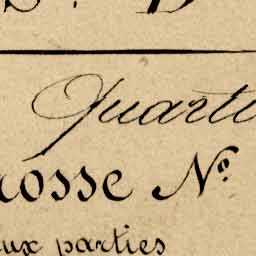 Quart
rosse Nº
ux parties